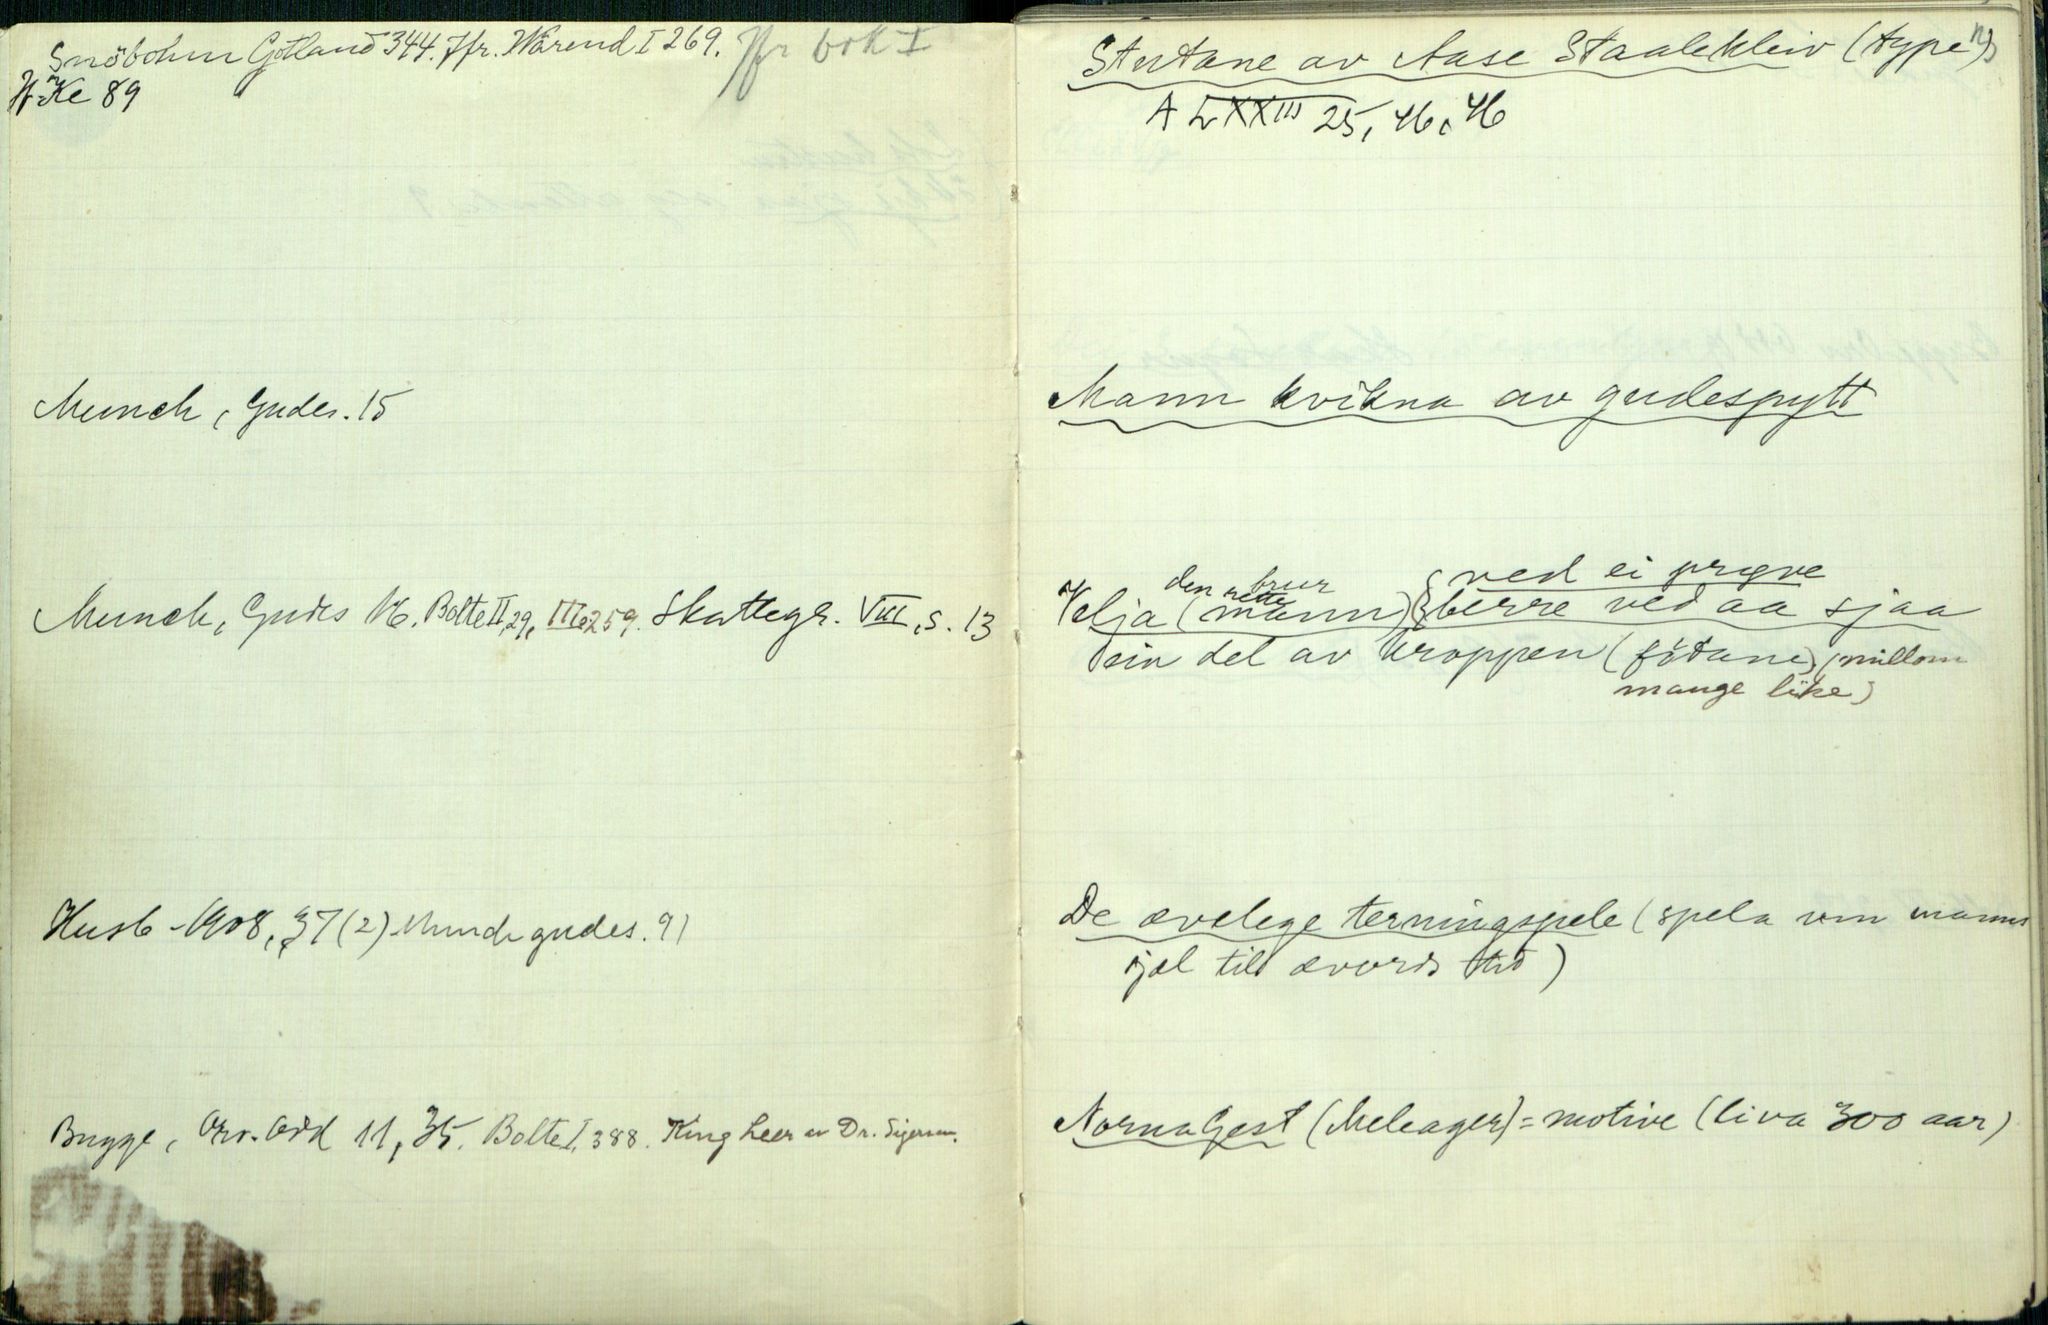 Snöbohm Gotland 344. Jfr. Wärend I 269. Jfr bok I
Ke 89
Munch, Gudes. 15
Munch, Gudes 16. Bolte II, 29, III, 259. Skattegr. VIII, s. 13
Husb - 1908, 37 (2) Munch gudes. 91
Bugge, Orv. Odd 11, 35. Bolte I, 388. King Leer av Dr. Sigerson.
Stutane av Aase Staalekleiv (type n)
A LXXIII 25, 46, 46
Mann kvikna av gudespytt
den rette brur ved ei prøve
Velja (mann) berre ved aa sjaa
ein del av kroppen (fötane) (millom
mange like)
De ævelege terningspele (spela um manns
sjæl til ævords tid)
Norna Gest (Meleager) = motive (liva 300 aar)